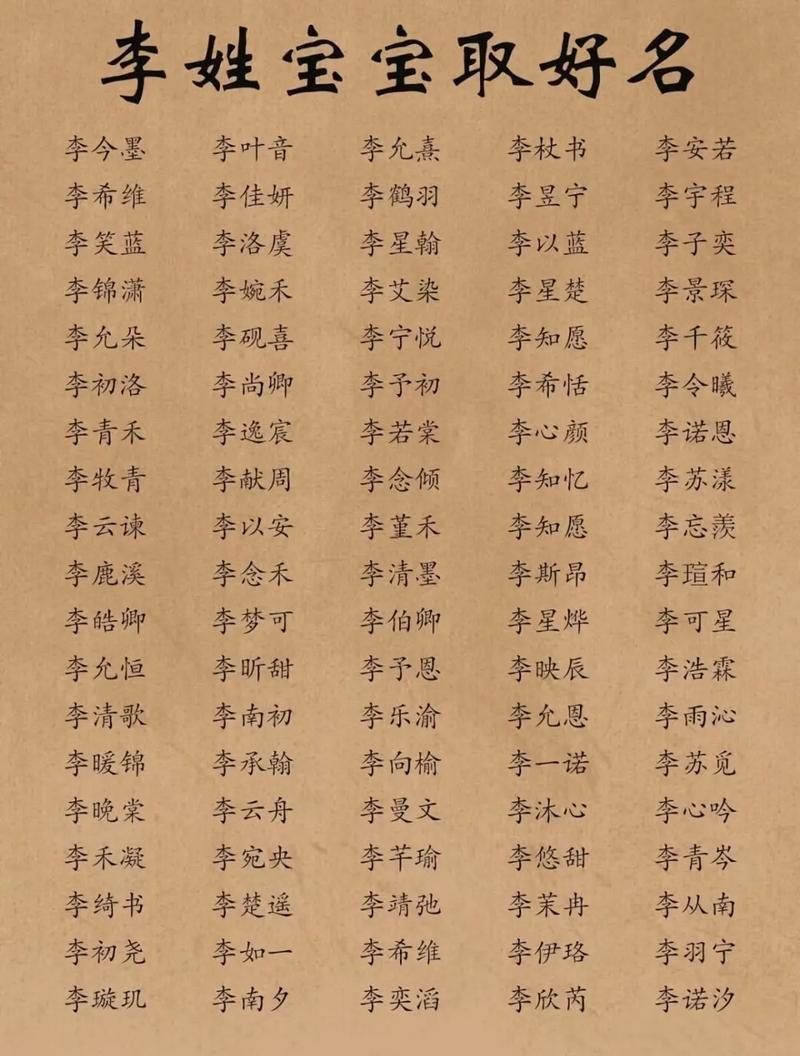 李姓宝宝取好名
李今墨 李叶音 李允熹 李杖书 李安若
李希维 李佳妍 李鹤羽 李昱宁 李宇程
李笑蓝 李洛虞 李星翰 李以蓝 李子奕
李锦潇 李婉禾 李艾染 李星楚 李景琛
李允朵 李砚喜 李宁悦 李知愿 李千筱
李初洛 李尚卿 李予初 李希恬 李令曦
李青禾 李逸宸 李若棠 李心颜 李诺恩
李牧青 李献周 李念倾 李知忆 李苏漾
李云谏 李以安 李堇禾 李知愿 李忘羡
李鹿溪 李念禾 李清墨 李斯昂 李瑄和
李皓卿 李梦可 李伯卿 李星烨 李可星
李允恒 李昕甜 李予恩 李映辰 李浩霖
李清歌 李南初 李乐渝 李允恩 李雨沁
李暖锦 李承翰 李向榆 李一诺 李苏觅
李晚棠 李云舟 李曼文 李沐心 李心吟
李禾凝 李宛央 李芊瑜 李悠甜 李青岑
李绮书 李楚遥 李靖弛 李茉冉 李从南
李初尧 李如一 李希维 李伊珞 李羽宁
李璇玑 李南夕 李奕滔 李欣芮 李诺汐